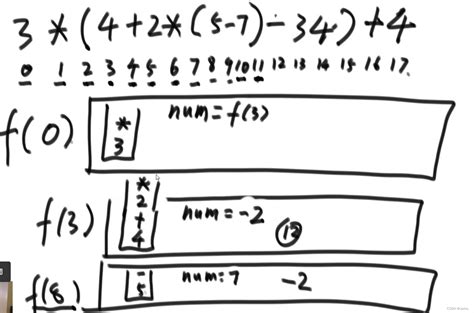 3 * ( 4 + 2 * ( 5 - 7 ) - 34 ) + 4
0 1 2 3 4 5 6 7 8 9 10 11 12 13 14 15 16 17.
f(0) * 3 num = f(3)
f(3) * 2 + 4 num = -2 13
f(8) 5 num: 7 -2